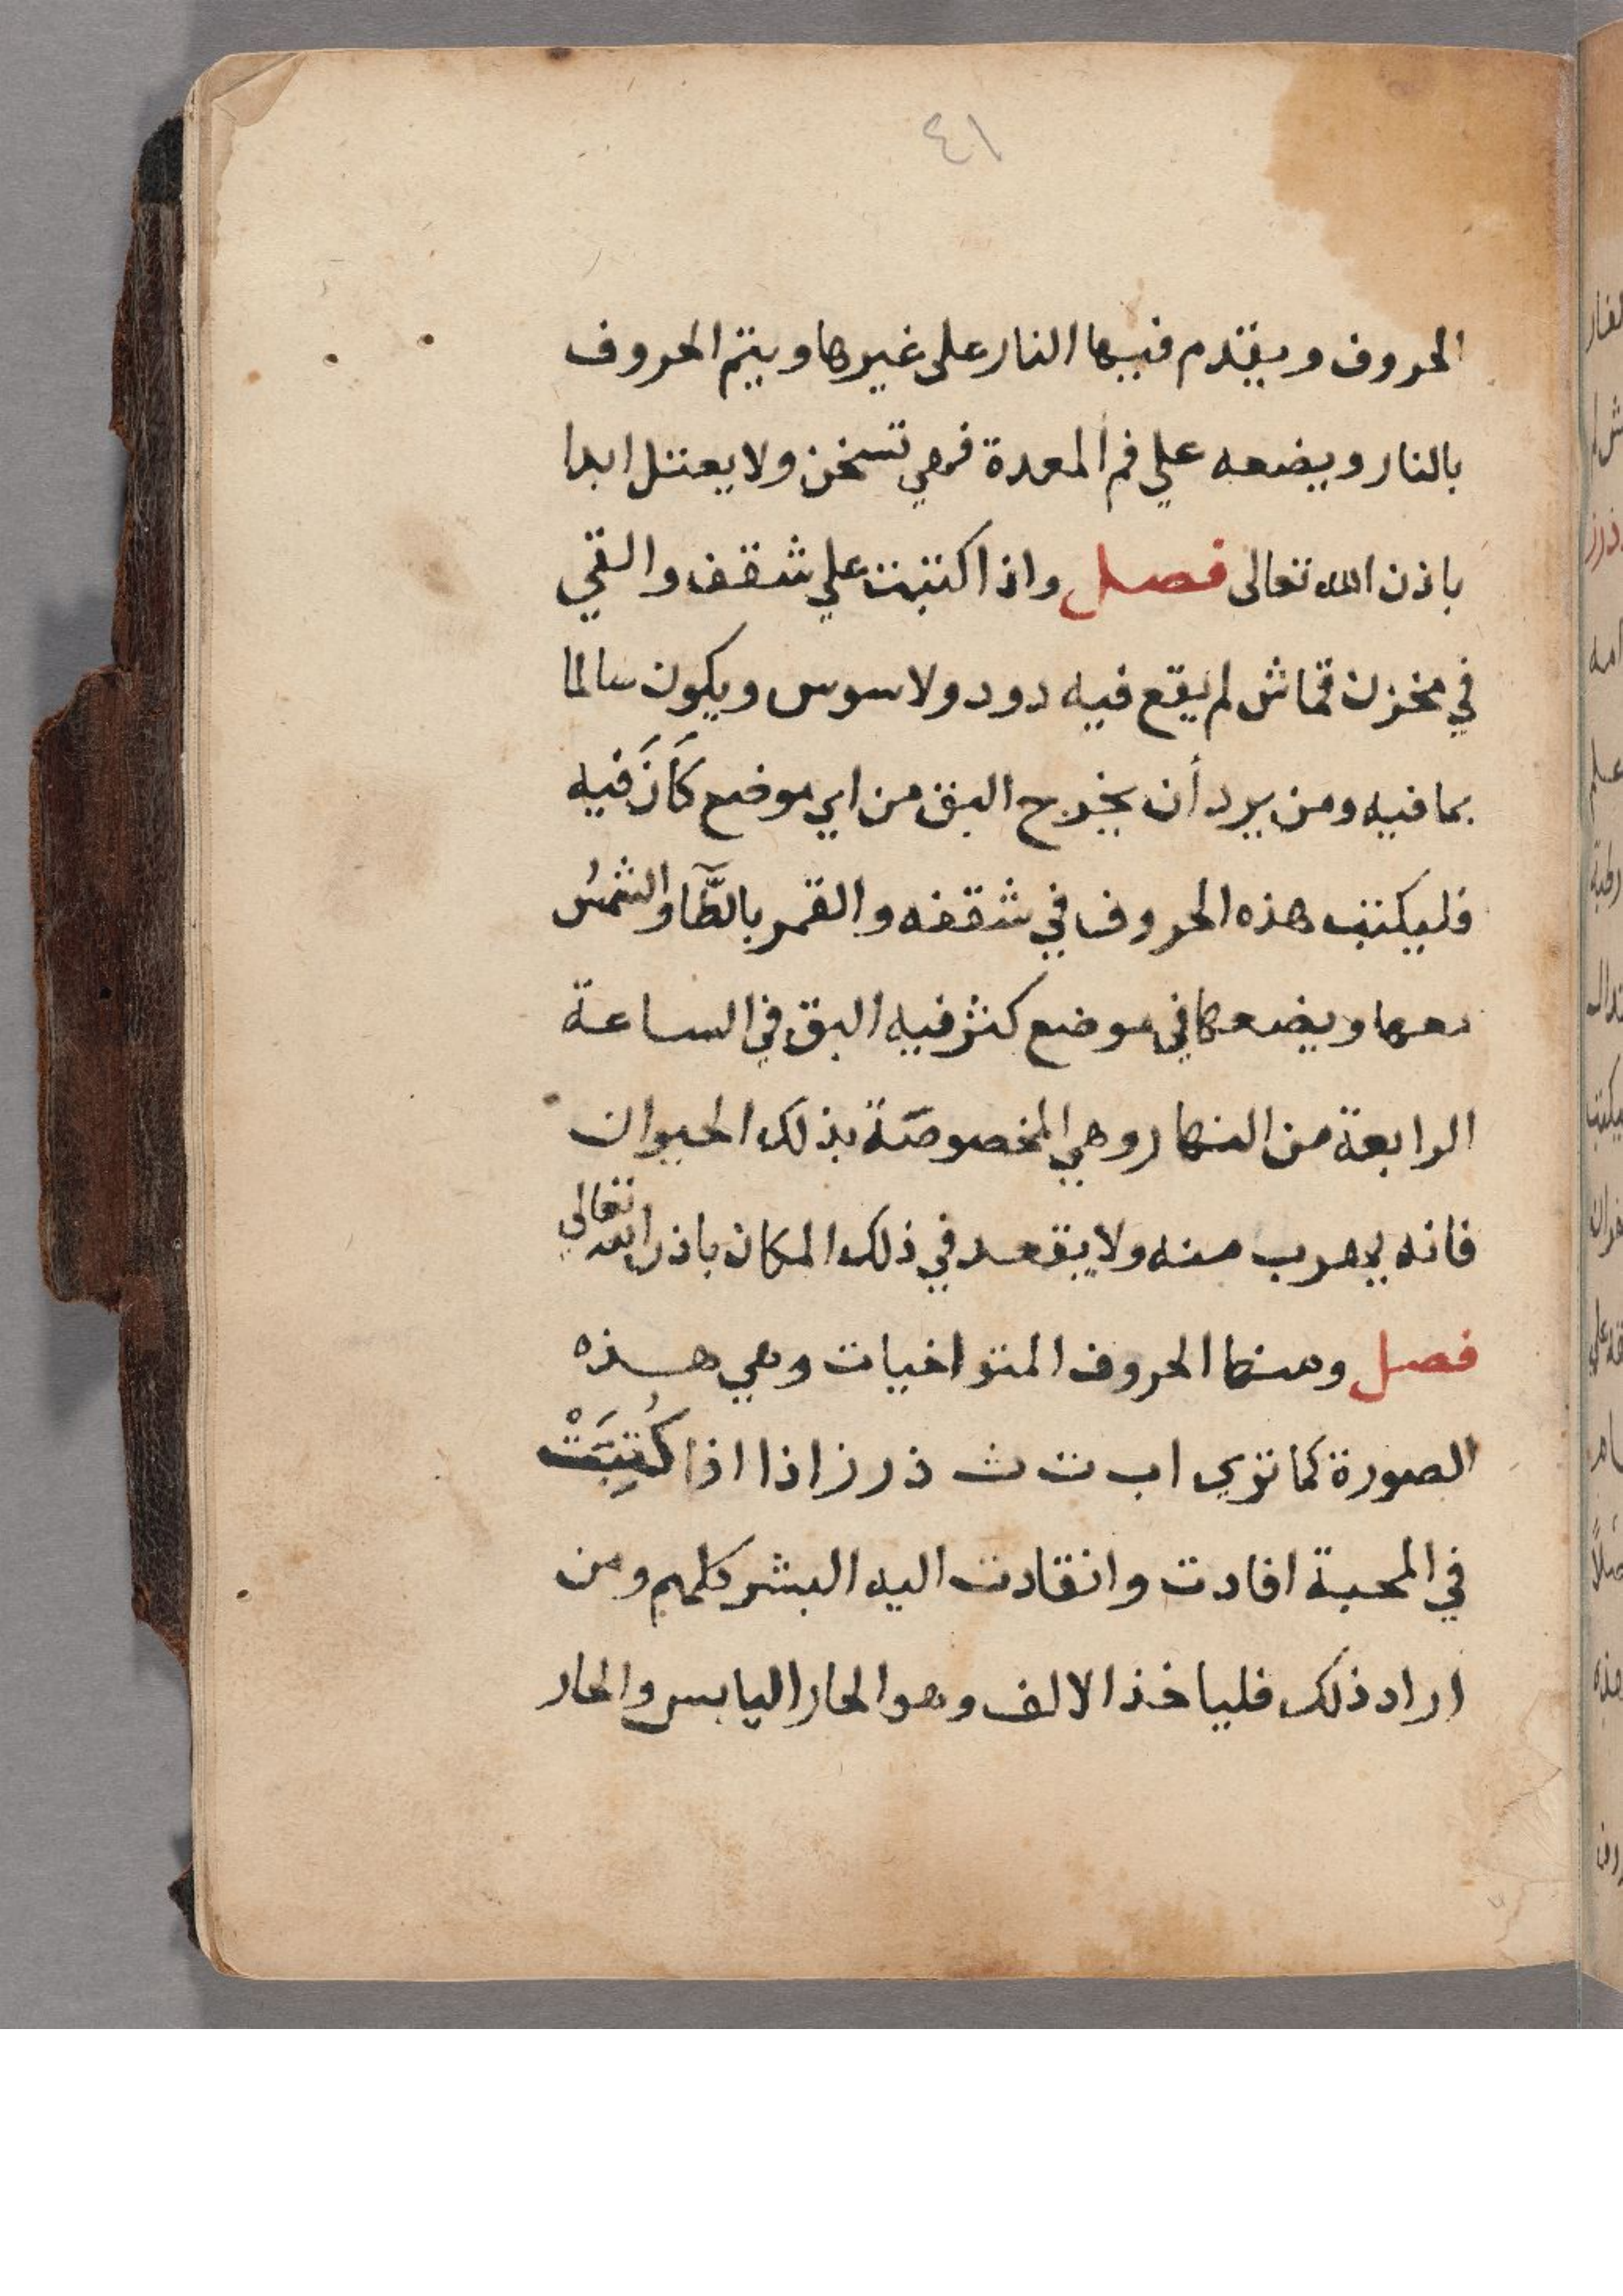 ٤١
الحروف ويقدم فيها النار على غيرها ويتم الحروف
بالنار ويضعه علي فم المعدة فهي تسخن ولا يعتل ابدا
باذن الله تعالى فصل واذا اكتبت علي شقف والقي
في مخزن قماش لم يقع فيه دود ولا سوس ويكون سالما
بما فيه ومن يرد أن يخرج البق من اي موضع كَانَ فيه
فليكتب هذه الحروف في شقفه والقمر بالطَّآ والشمسُ
معها ويضعها في موضع كثر فيه البق في الساعة
الرابعة من النهار وهي المخصوصَة بذلك الحيوان
فانه يهرب منه ولا يقعد في ذلك المكان باذن الله تعالي
فصل ومنها الحروف المتواخيات وهي هذه
الصورة كما تري ا ب ت ث ذ ر ز اذا اذا كُتِبَتْ
في المحبة افادت وانقادت اليه البشر كلهم ومن
اراد ذلك فلياخذ الالف وهو الحار اليابس والحار